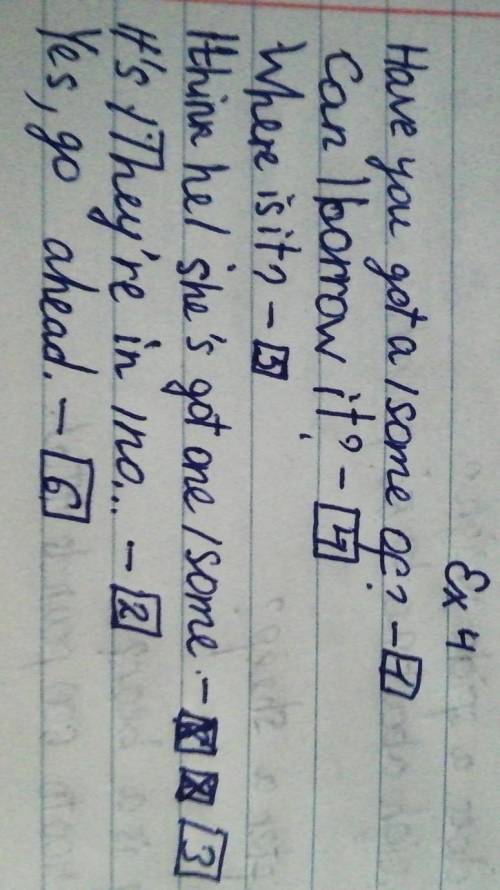 Ex 4
Have you got a / some of? - 1
Can I borrow it? - 4
Where is it? - 5
I think he / she's got one / some. - 3
It's / They're in / no... - 2
Yes, go ahead. - 6